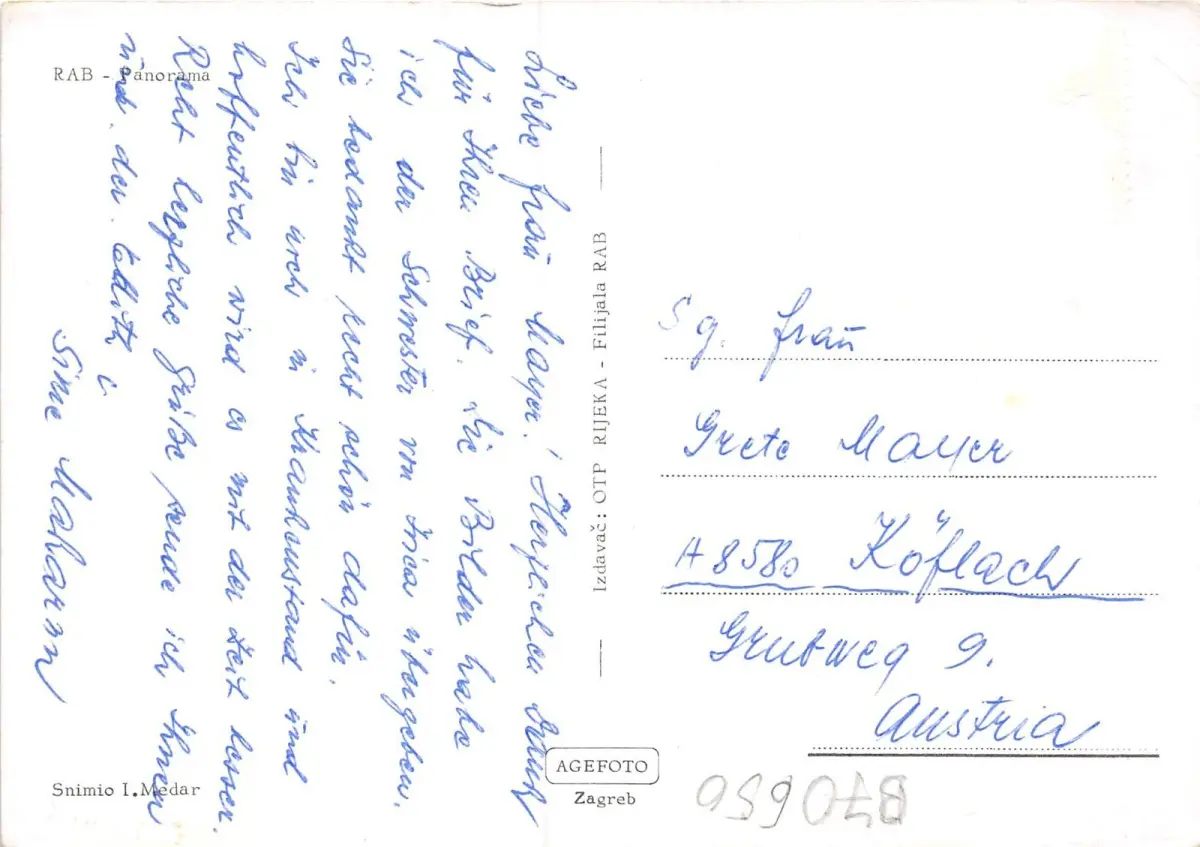 RAB - Panorama
Liebe Frau Mayer! Herzlichen Dank
für Ihren Brief. Die Bilder habe
ich der Schwester von Ivica übergeben.
Sie bedankt recht schön dafür.
Ich bin auch in Krankenstand und
hoffentlich wird es mit der Zeit besser.
Recht herzliche Grüße sende ich Ihnen
und der
Sime
Snimio I. Medar
Izdavač: OTP RIJEKA - Filijala RAB
AGEFOTO
Zagreb
S g. Frau
Grete Mayer
A 8580 Köflach
Grubweg 9.
Austria
870659